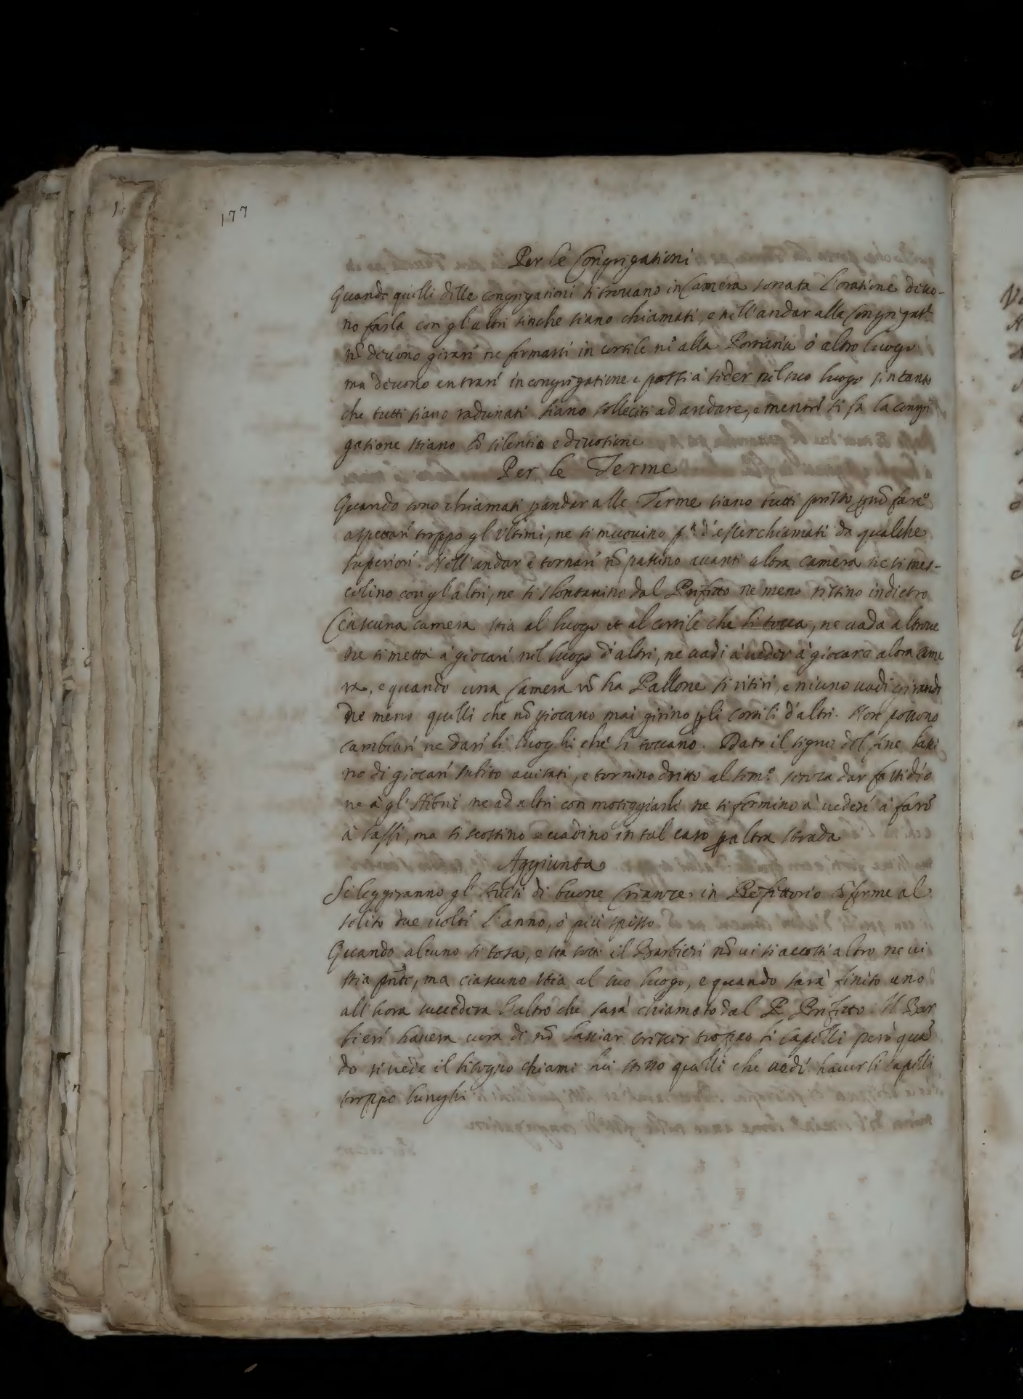 177
Per le Congregationi
Quando quelli delle congregationi si trovano in Camera sonata l'oratione devo-
no farla con gl'altri sinche siano chiamati, e nell'andar alle Congregat.ni
nō devono girare ne fermarsi in cortile ne alla Portaria ò altro luogo
ma devono entrare in congregatione e à seder nel suo luogo sintanto
che tutti siano radunati siano solleciti ad andare, e mentre si fa la congre
gatione stiano cō silentio e divotione
Per le Terme
Quando sono chiamati andar alle Terme siano tutti
aspettare troppo gl'ultimi, ne si muovino p.a d'esser chiamati da qualche
superiore. Nell'andar e tornare nō passino avanti altra camera ne si mes-
colino con gl'altri, ne si slontanino dal Prefetto ne meno restino indietro
Ciascuna camera stia al luogo et al cortile che li tocca, ne vada altrove
ne si metta à giocare nel luogo d'altri, ne vadi à veder à giocare altra came
ra, e quando una Camera nō ha Pallone si ritiri, e niuno vadi girando
Ne meno quelli che nō giocano mai girino li cortili d'altri. Non possono
cambiare ne dare li luoghi che li toccano. Dato il segno del fine
no di giocare subito avisati, e tornino dritto al sem.o senza dar fastidio
ne à gl' ne ad altri con motteggiarli ne si fermino à vedere à fare
à sassi, ma si scostino e vadino in tal caso altra strada
Aggiunta
Se leggeranno gl' di buone Creanze in Refettorio cōforme al
solito due volte l'anno, ò più spesso
Quando alcuno si tosa, e sta sotto il Barbiere nō vi si accosti altro ne vi
stia, ma ciascuno stia al suo luogo, e quando sarà finito uno
all'hora succederà l'altro che sarà chiamato dal P. Prefetto. Il Bar
biere haverà cura di nō lassiar crescer troppo li capelli però quā
do si vede il bisogno chiami lui stesso quelli che vede haver li capelli
troppo lunghi